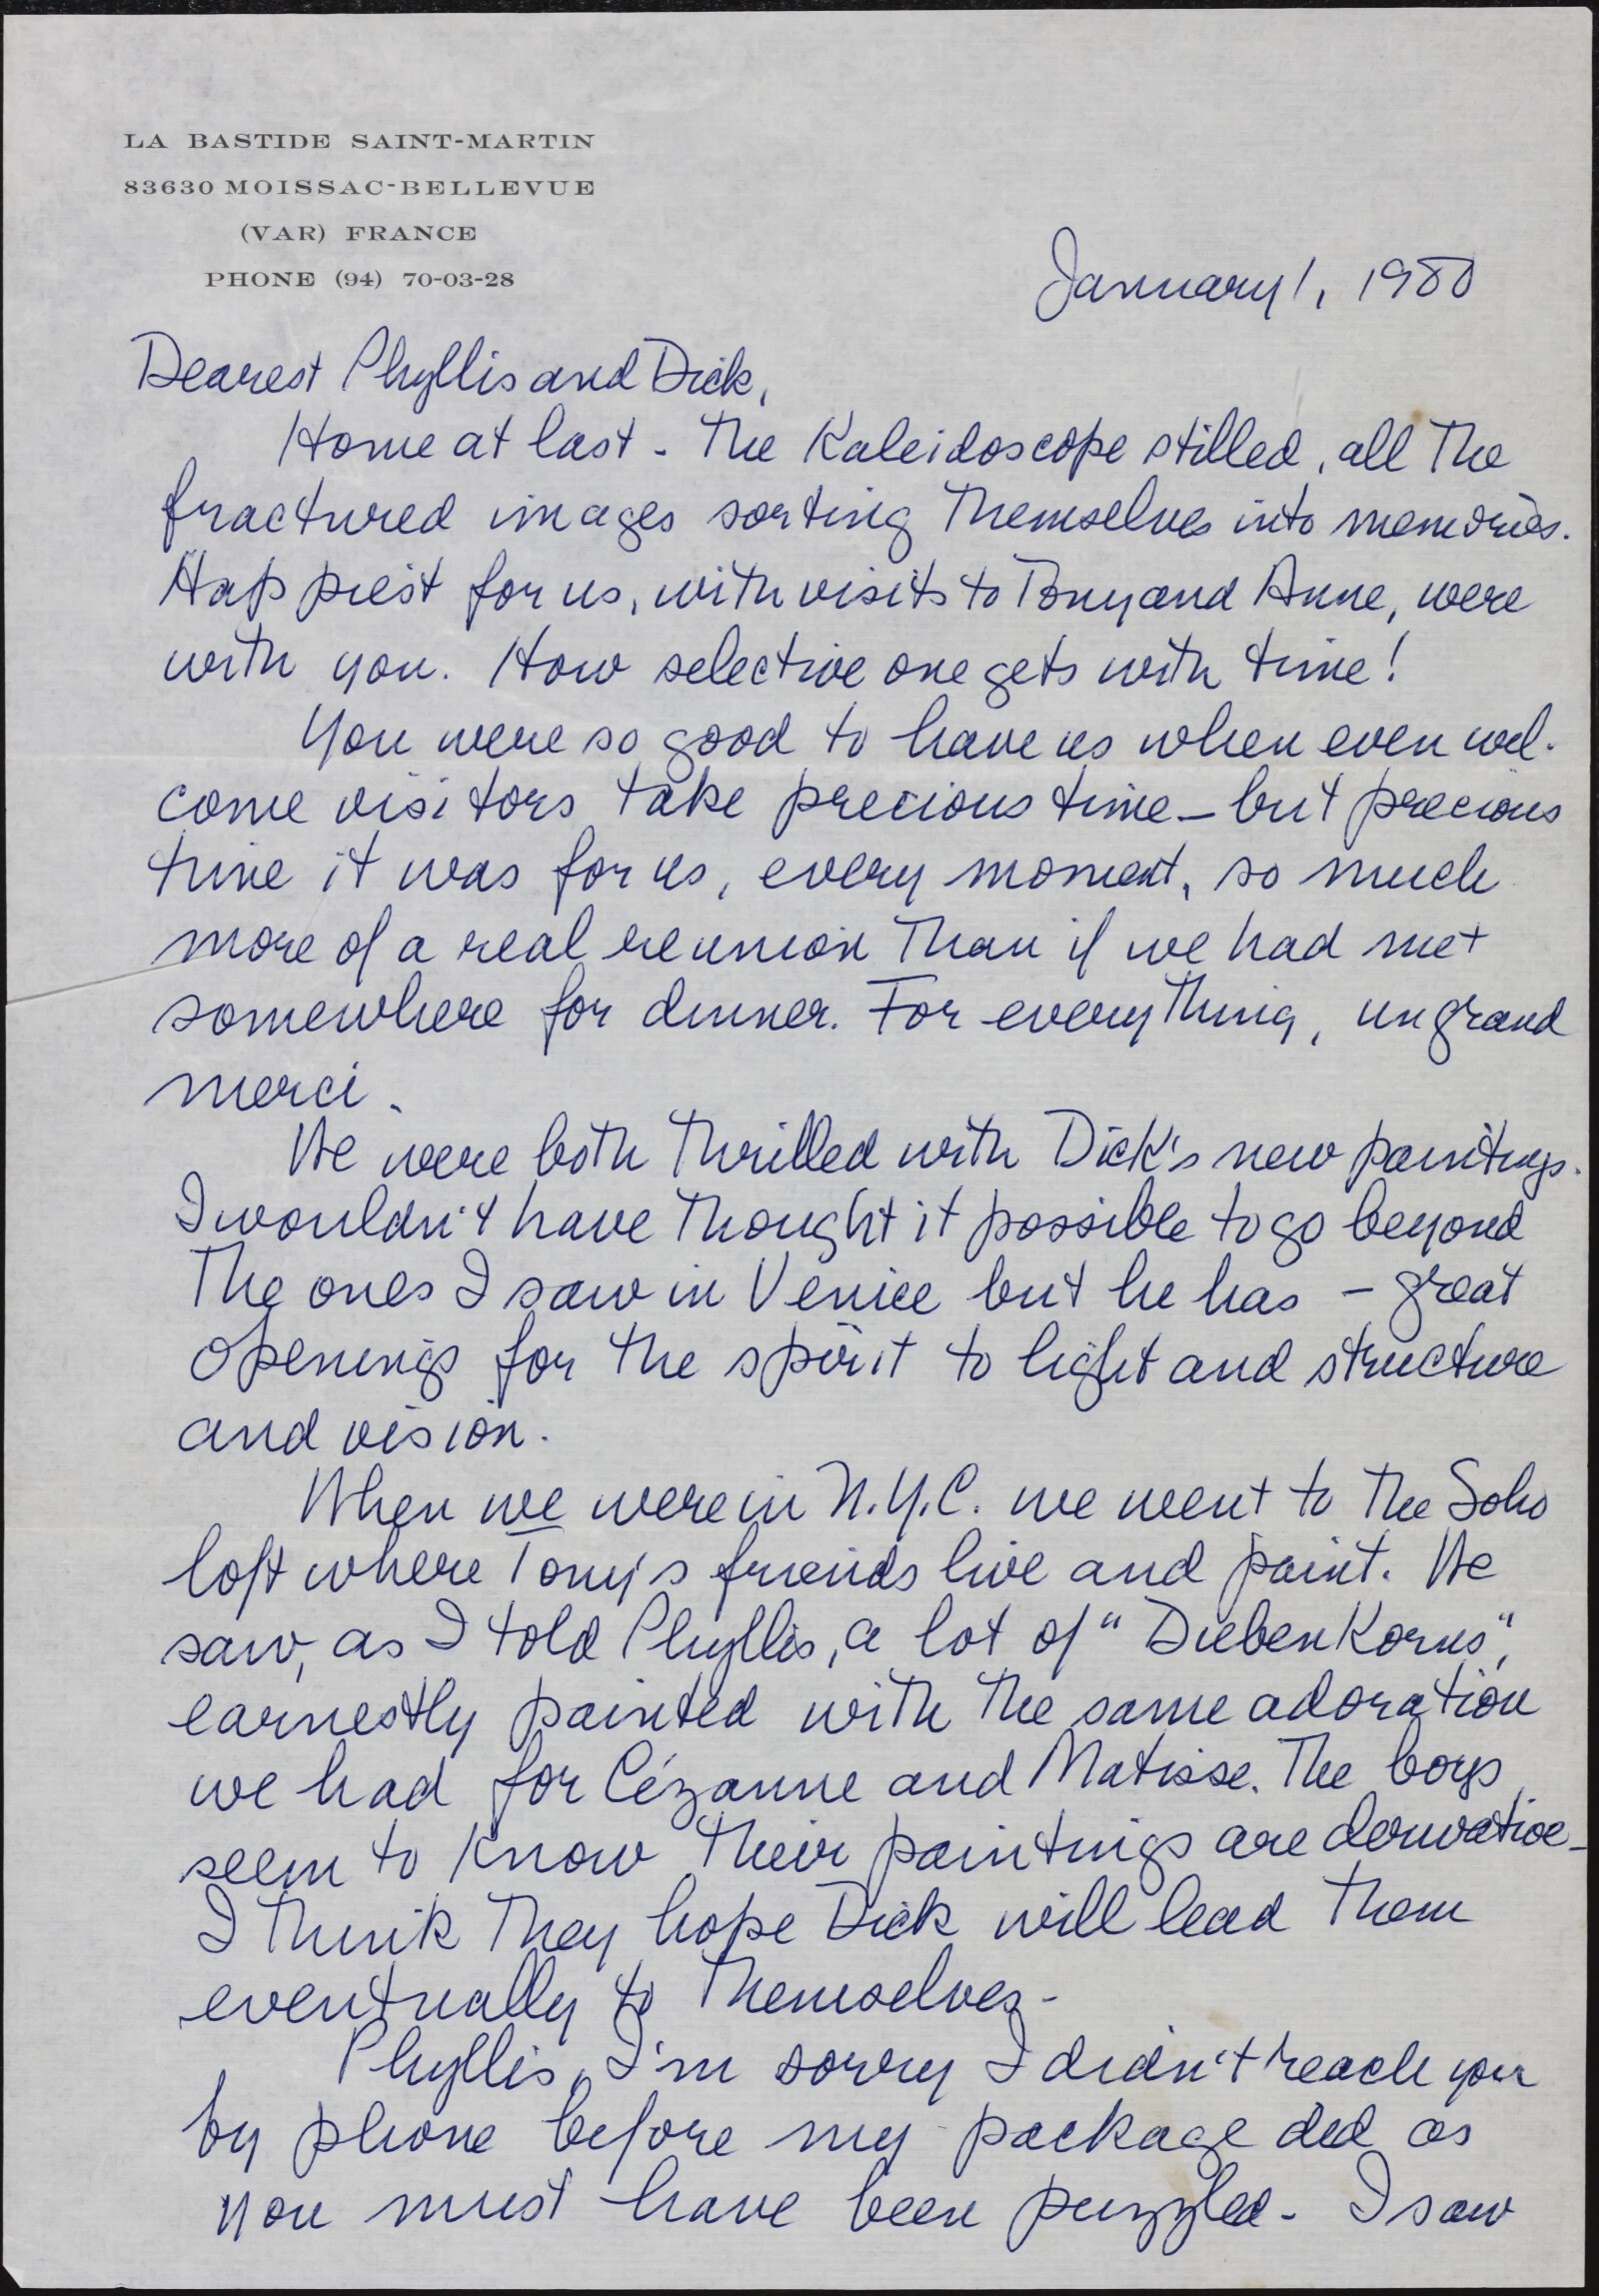 LA BASTIDE SAINT-MARTIN
83630 MOISSAC-BELLEVUE
(VAR) FRANCE
PHONE (94) 70-03-28
January 1, 1980
Dearest Phyllis and Dick,
Home at last - The Kaleidoscope stilled, all The
fractured images sorting Themselves into memories.
Happiest for us, with visits to Tony and Anne, were
with you. How selective one gets with time!
You were so good to have us when even wel-
come visitors take precious time - but precious
time it was for us, every moment, so much
more of a real reunion Than if we had met
somewhere for dinner. For everything, un grand
merci.
We were both Thrilled with Dick's new paintings.
I wouldn't have Thought it possible to go beyond
The ones I saw in Venice but he has - great
openings for the spirit to light and structure
and vision.
When we were in N.Y.C. we went to The Soho
loft where Tony's friends live and paint. We
saw, as I told Phyllis, a lot of "DiebenKorns",
earnestly painted with the same adoration
we had for Cézanne and Matisse. The boys
seem to Know Their paintings are derivative -
I Think They hope Dick will lead Them
eventually to Themselves -
Phyllis, I'm sorry I didn't reach you
by phone before my package did as
you must have been puzzled - I saw